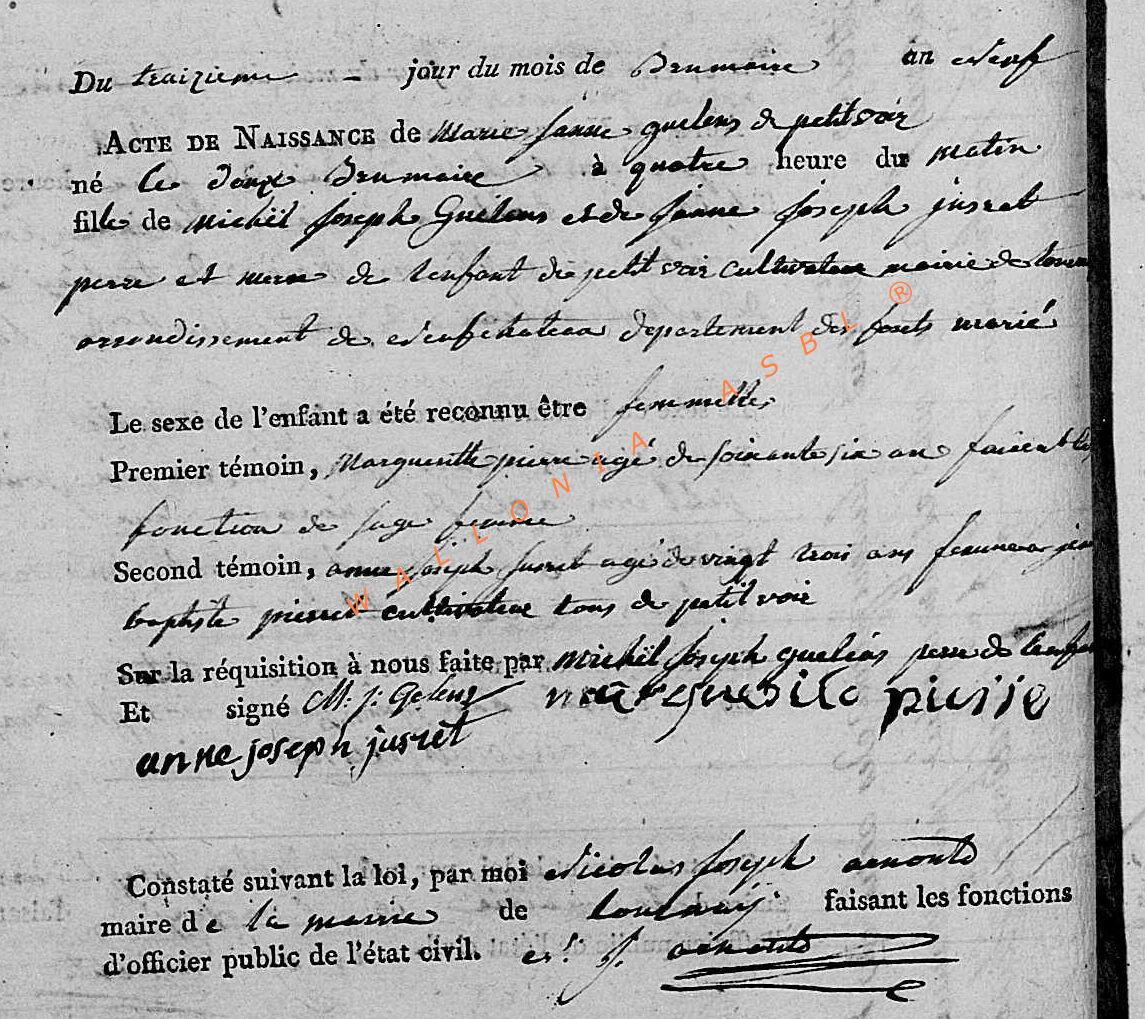 Du traizieme - jour du mois de Brumaire an Neuf
ACTE DE NAISSANCE de Marie Janne guelens de petitvoir
né le douze Brumaire à quatre heure du matin
fille de Michël Joseph Guelens et de Janne Joseph jusret
perre et merre de lenfant de petitvoir cultivateur mairie de
arrondissement de Neufchateau departement des forets marié
Le sexe de l'enfant a été reconnu être femmelle
Premier témoin, Margueritte pierre agé de soixante six ans faisent les
fonction de sage femme
Second témoin, anne joseph jusret agé de vingt trois ans femme a jean
baptiste pierret cultivateur tous de petitvoir
Sur la réquisition à nous faite par Michël Joseph guelens perre de lenfant
Et signé M. j. Gelens marguerite pierre
anne joseph jusret
Constaté suivant la loi, par moi Nicolas Joseph arnould
maire de la mairie de tournay faisant les fonctions
d'officier public de l'état civil. N. J. arnould
WALLONIA ASBL ®